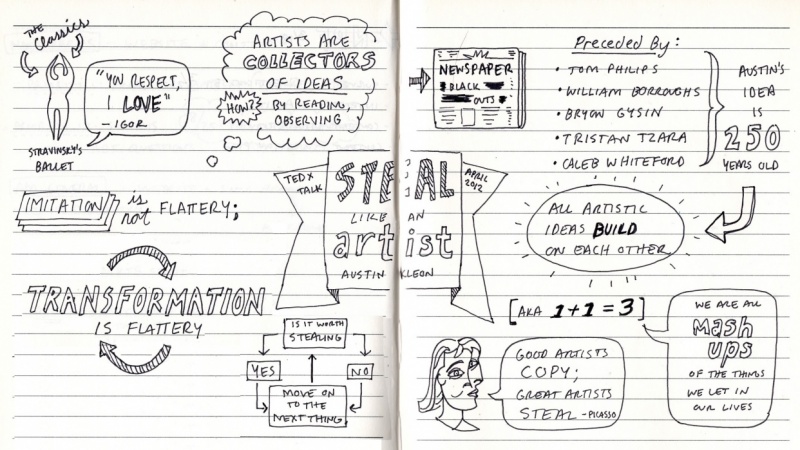 THE
Classics
"YOU RESPECT,
I LOVE"
- IGOR
STRAVINSKY'S
BALLET
ARTISTS ARE
COLLECTORS
OF IDEAS
HOW?
BY READING,
OBSERVING
IMITATION is
not FLATTERY;
TRANSFORMATION
IS FLATTERY
TEDX
TALK
STEAL
LIKE AN
artist
AUSTIN KLEON
APRIL
2012
IS IT WORTH
STEALING
YES
NO
MOVE ON
TO THE
NEXT THING
NEWSPAPER
BLACK
OUTS
Preceded By:
• TOM PHILIPS
• WILLIAM BORROUGHS
• BRYON GYSIN
• TRISTAN TZARA
• CALEB WHITEFORD
AUSTIN'S
IDEA
IS
250
YEARS OLD
ALL ARTISTIC
IDEAS BUILD
ON EACH OTHER
[AKA 1+1=3]
GOOD ARTISTS
COPY;
GREAT ARTISTS
STEAL - PICASSO
WE ARE ALL
mash
ups
OF THE THINGS
WE LET IN
OUR LIVES